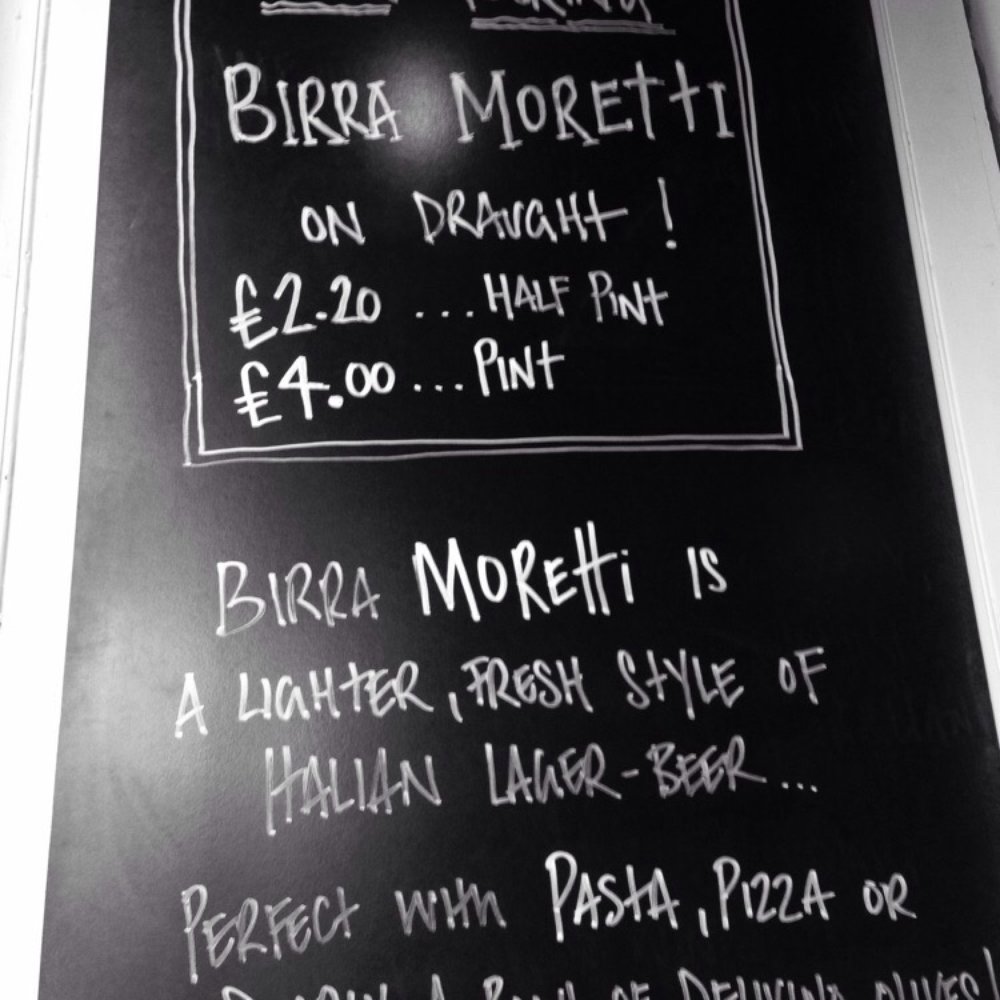 BIRRA MORETTI
ON DRAUGHT!
£2.20 ... HALF PINT
£4.00 ... PINT
BIRRA MORETTi IS
A LIGHTER, FRESH STYLE OF
ITALIAN LAGER-BEER...
PERFECT WITH PASTA, PIZZA OR
A BOWL OF DELICIOUS OLIVES!